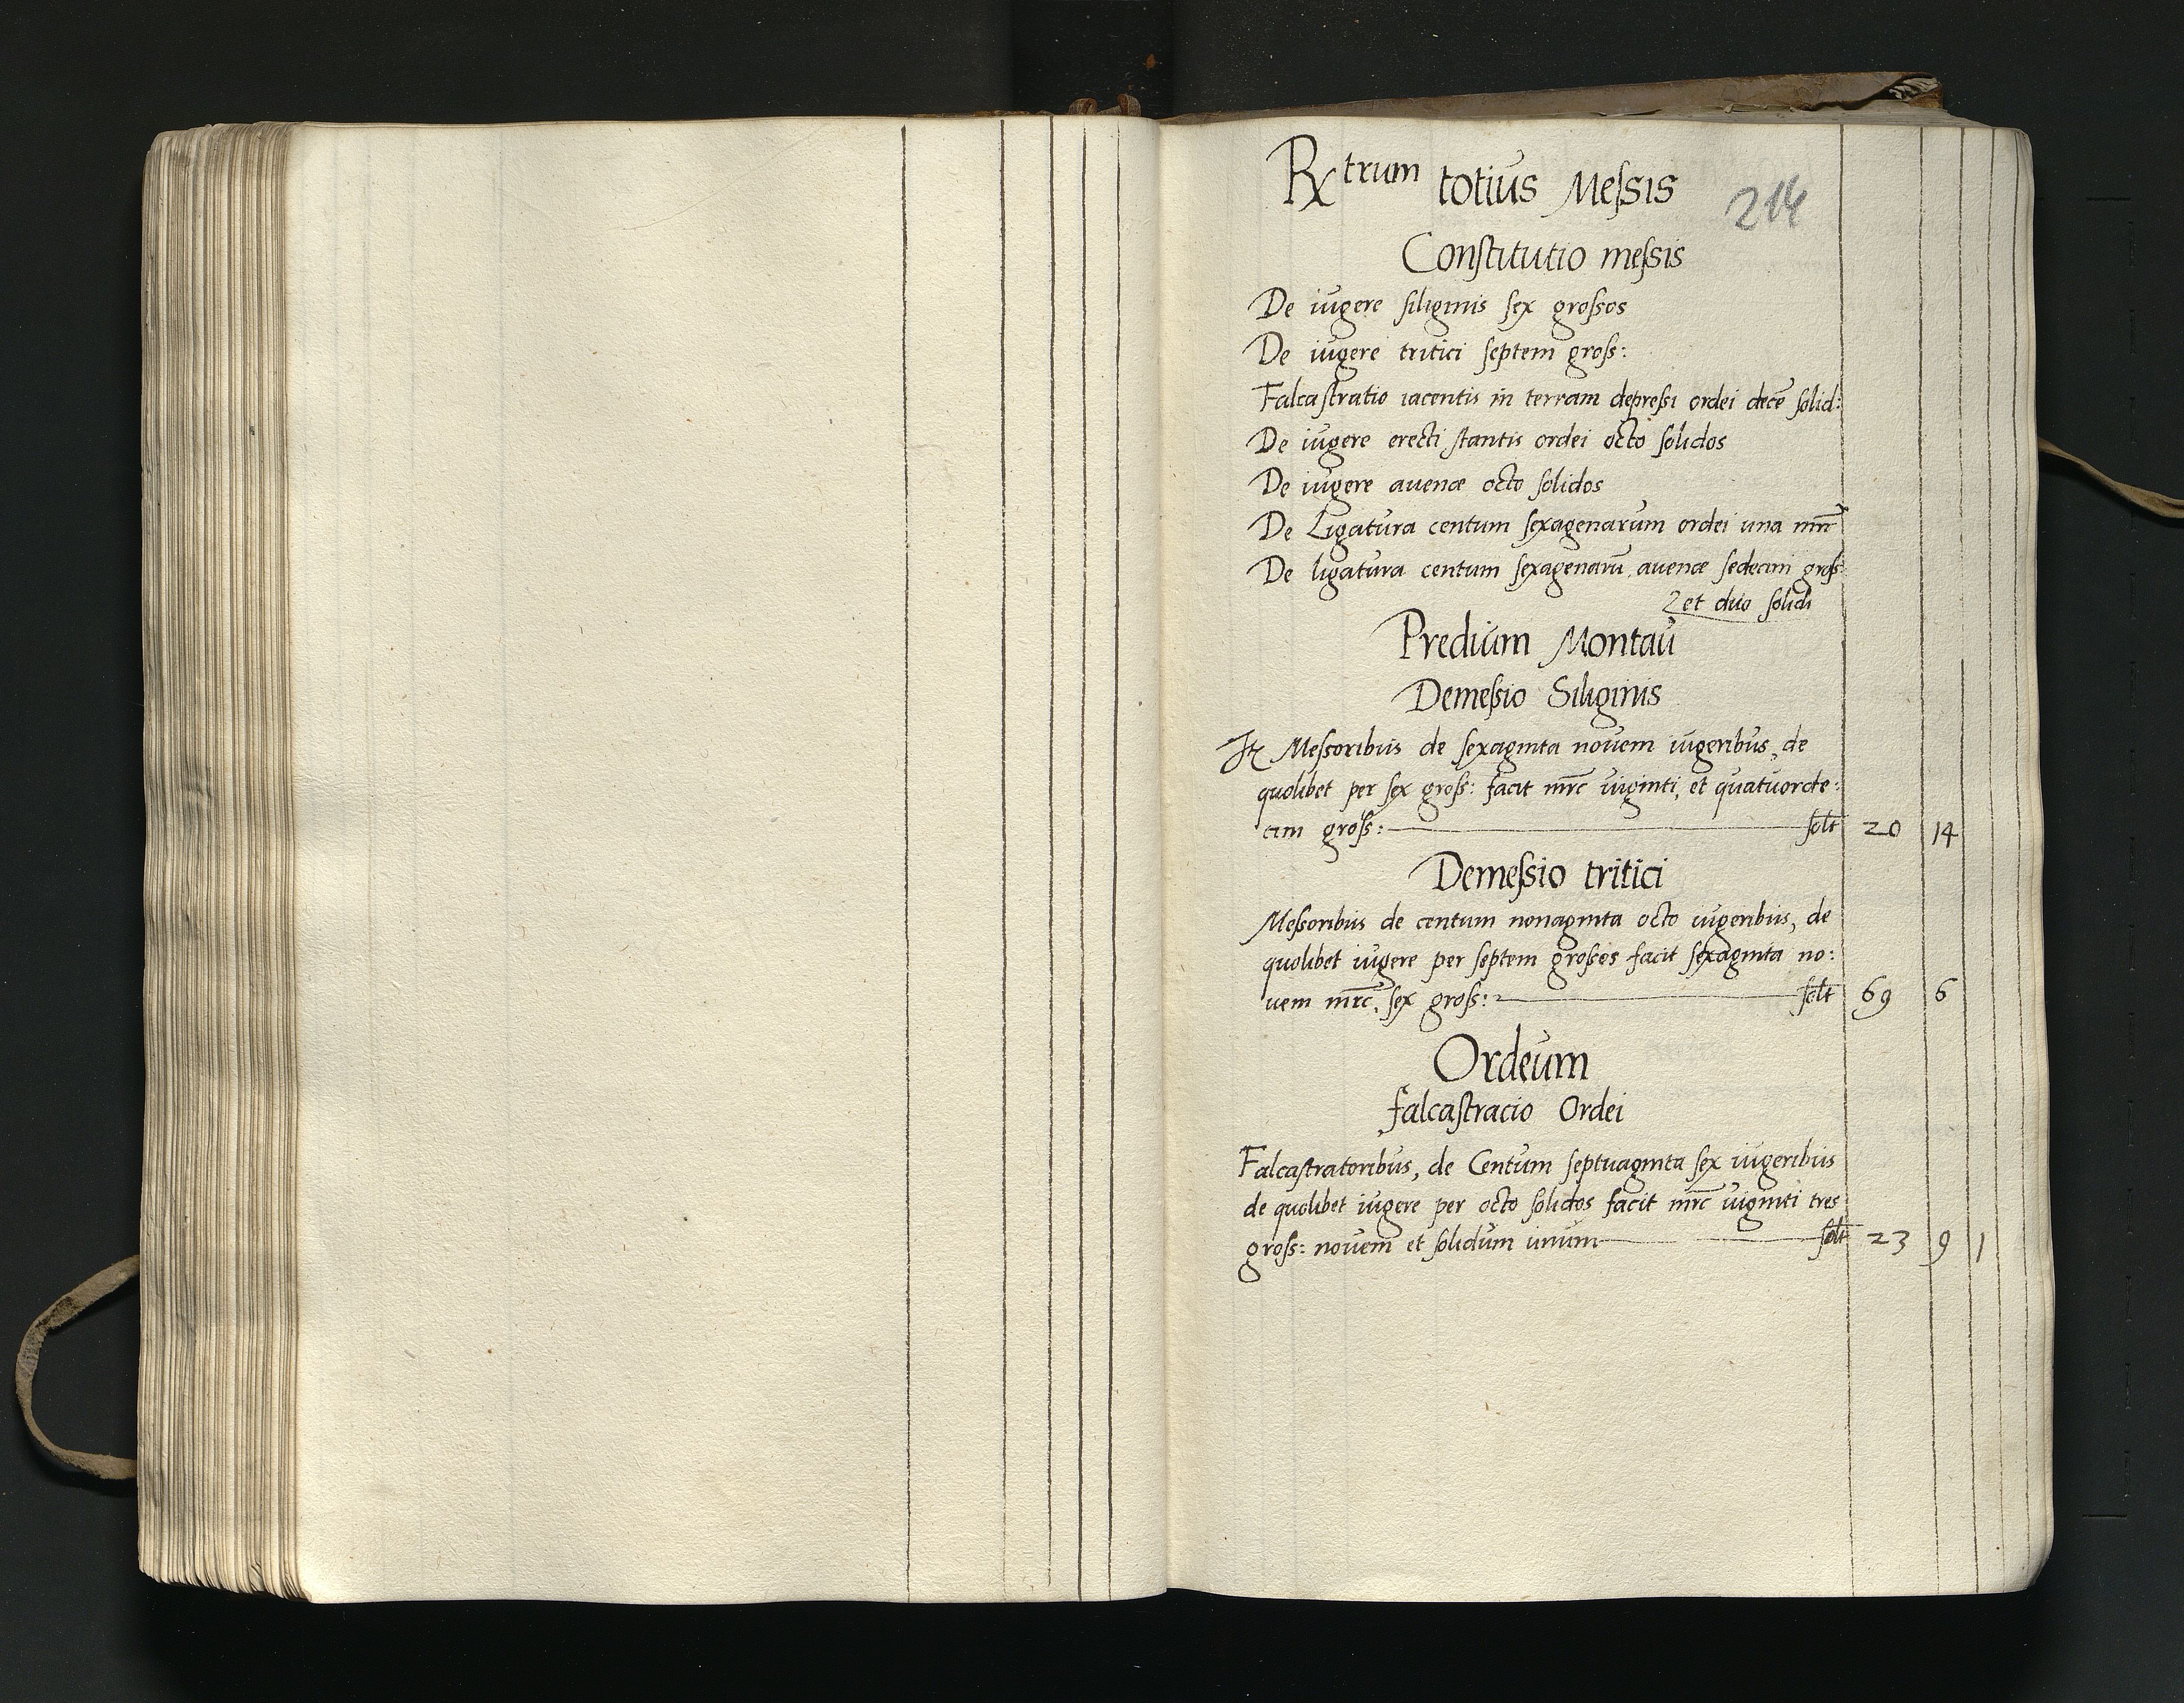 Rx trum totius Meſsis
214
Conſtitutio meſsis
De iugere ſiliginis ſex groſsos
De iugere tritici ſeptem groſs:
Falcaſtratio iacentis in terram depreſsi ordei decē ſolid:
De iugere erecti ſtantis ordei octo ſolidos
De iugere auenæ octo ſolidos
De Ligatura centum ſexagenarum ordei una mrc̄
De ligatura centum ſexagenarū auenæ ſedecim groſs
et duo ſolidi
Predium Montau
Demeſsio Siliginis
Meſsoribus de ſexaginta nouem iugeribus, de
quolibet per ſex groſs: facit mrc̄ uiginti, et quatuorde:
cim groſs: ſolt 20 14
Demeſsio tritici
Meſsoribus de centum nonaginta octo iugeribus, de
quolibet iugere per ſeptem groſsos facit ſexaginta no:
uem mrc̄, ſex groſs: ſolt 69 6
Ordeum
falcaſtracio Ordei
Falcaſtratoribus, de Centum ſeptuaginta ſex iugeribus
de quolibet iugere per octo ſolidos facit mrc̄ uiginti tres
groſs: nouem et ſolidum unum ſolt 23 9 1